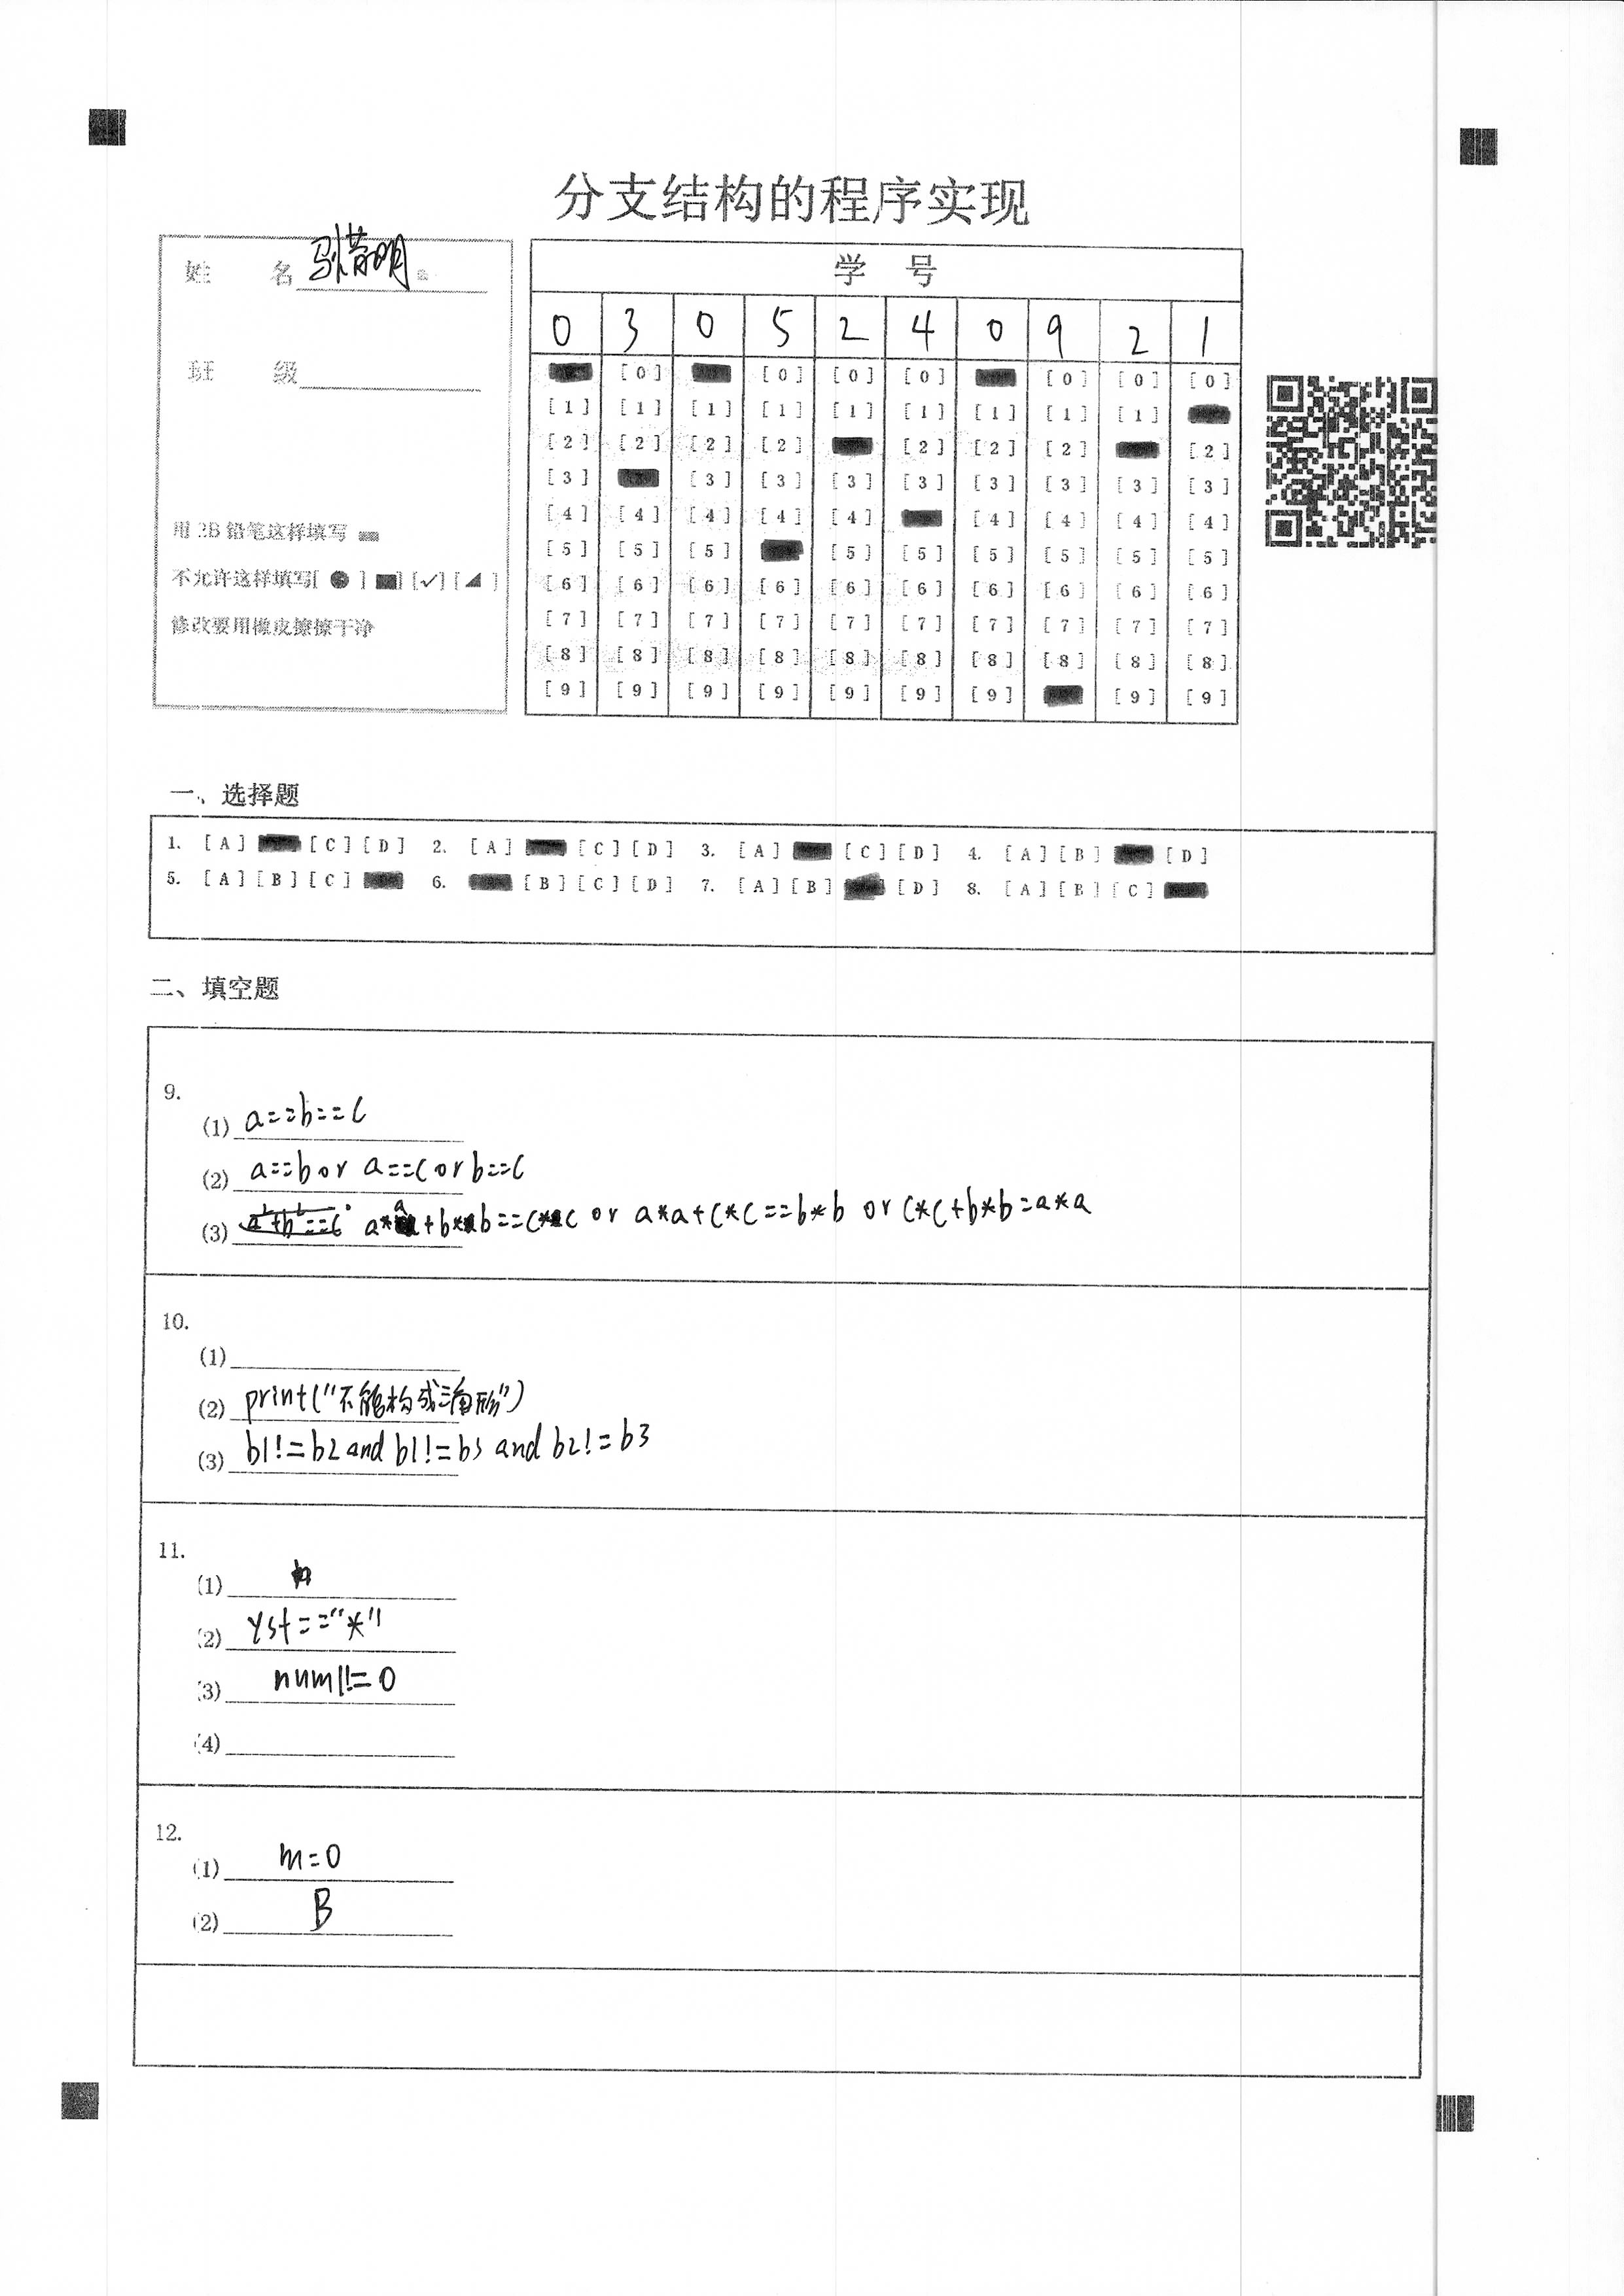 分支结构的程序实现
姓 名
班 级
用 2B 铅笔这样填写
不允许这样填写[ ● ] [■] [✓] [◢ ]
修改要用橡皮擦擦干净
学 号
0 3 0 5 2 4 0 9 2 1
[0] [0] [0] [0] [0] [0] [0]
[1] [1] [1] [1] [1] [1] [1] [1] [1]
[2] [2] [2] [2] [2] [2] [2] [2]
[3] [3] [3] [3] [3] [3] [3] [3] [3]
[4] [4] [4] [4] [4] [4] [4] [4] [4]
[5] [5] [5] [5] [5] [5] [5] [5] [5]
[6] [6] [6] [6] [6] [6] [6] [6] [6] [6]
[7] [7] [7] [7] [7] [7] [7] [7] [7] [7]
[8] [8] [8] [8] [8] [8] [8] [8] [8] [8]
[9] [9] [9] [9] [9] [9] [9] [9] [9]
一、选择题
1. [A] [C] [D] 2. [A] [C] [D] 3. [A] [C] [D] 4. [A] [B] [D]
5. [A] [B] [C] 6. [B] [C] [D] 7. [A] [B] [D] 8. [A] [B] [C]
二、填空题
9.
(1) a==b==c
(2) a==b or a==c or b==c
(3) a*a+b*b==c*c or a*a+c*c==b*b or c*c+b*b=a*a
10.
(1)
(2) print("不能构成三角形")
(3) b1!=b2 and b1!=b3 and b2!=b3
11.
(1)
(2) yst=="*"
(3) num1!=0
(4)
12.
(1) m=0
(2) B